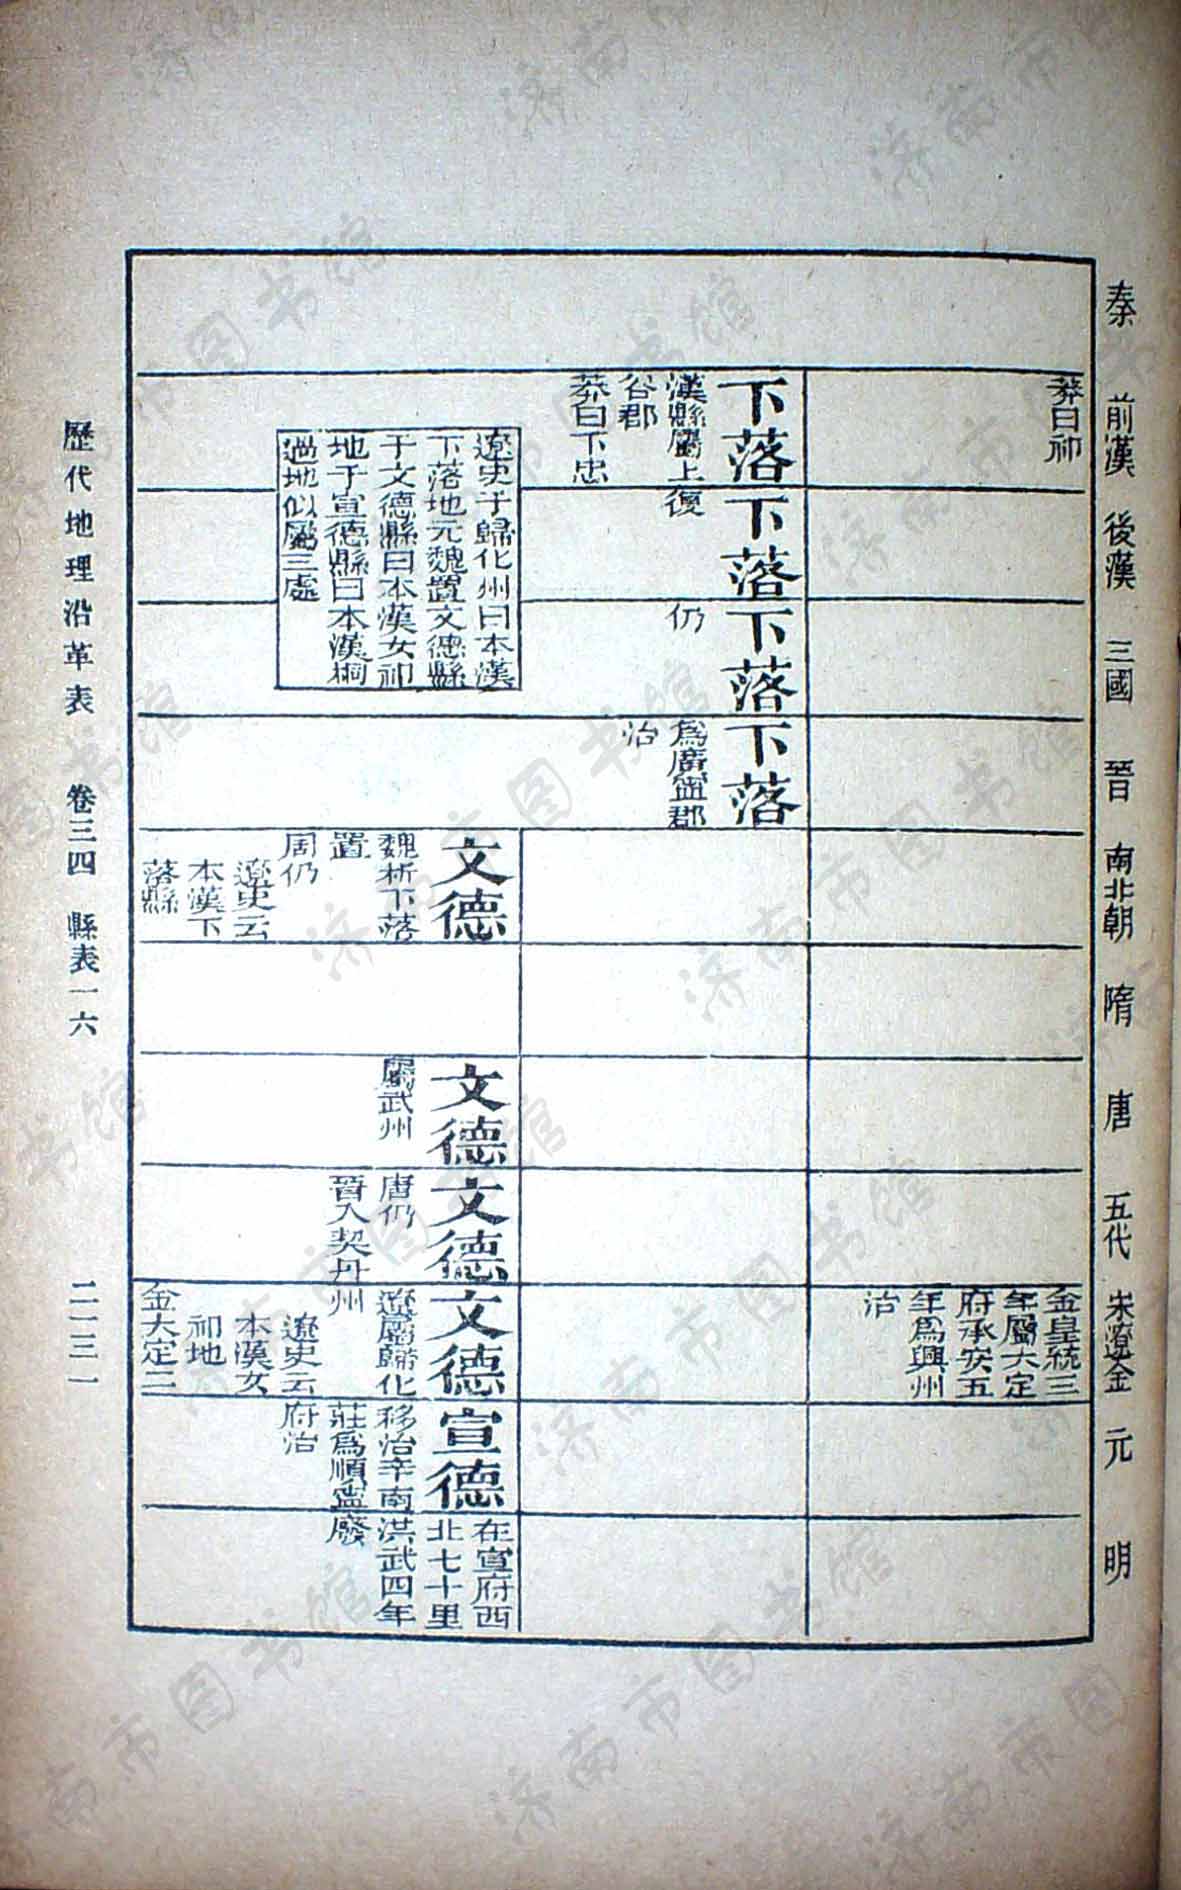 秦
前漢
後漢
三國
晉
南北朝
隋
唐
五代
宋遼金
元
明
莽曰祁
金皇統三
年屬大定
府承安五
年為興州
治
下落
漢縣屬上
谷郡
莽曰下忠
下落
復
下落
仍
下落
為廣甯郡
治
遼史于歸化州曰本漢
下落地元魏置文德縣
于文德縣曰本漢女祁
地于宣德縣曰本漢桐
過地似屬三處
文德
魏析下落
置
周仍
遼史云
本漢下
落縣
文德
屬武州
文德
唐仍
晉入契丹
文德
遼屬歸化
州
遼史云
本漢女
祁地
金大定二
宣德
移治辛南
莊為順甯
府治
在宣府西
北七十里
洪武四年
廢
歷代地理沿革表 卷三四 縣表一六 二一三一
济南市图书馆